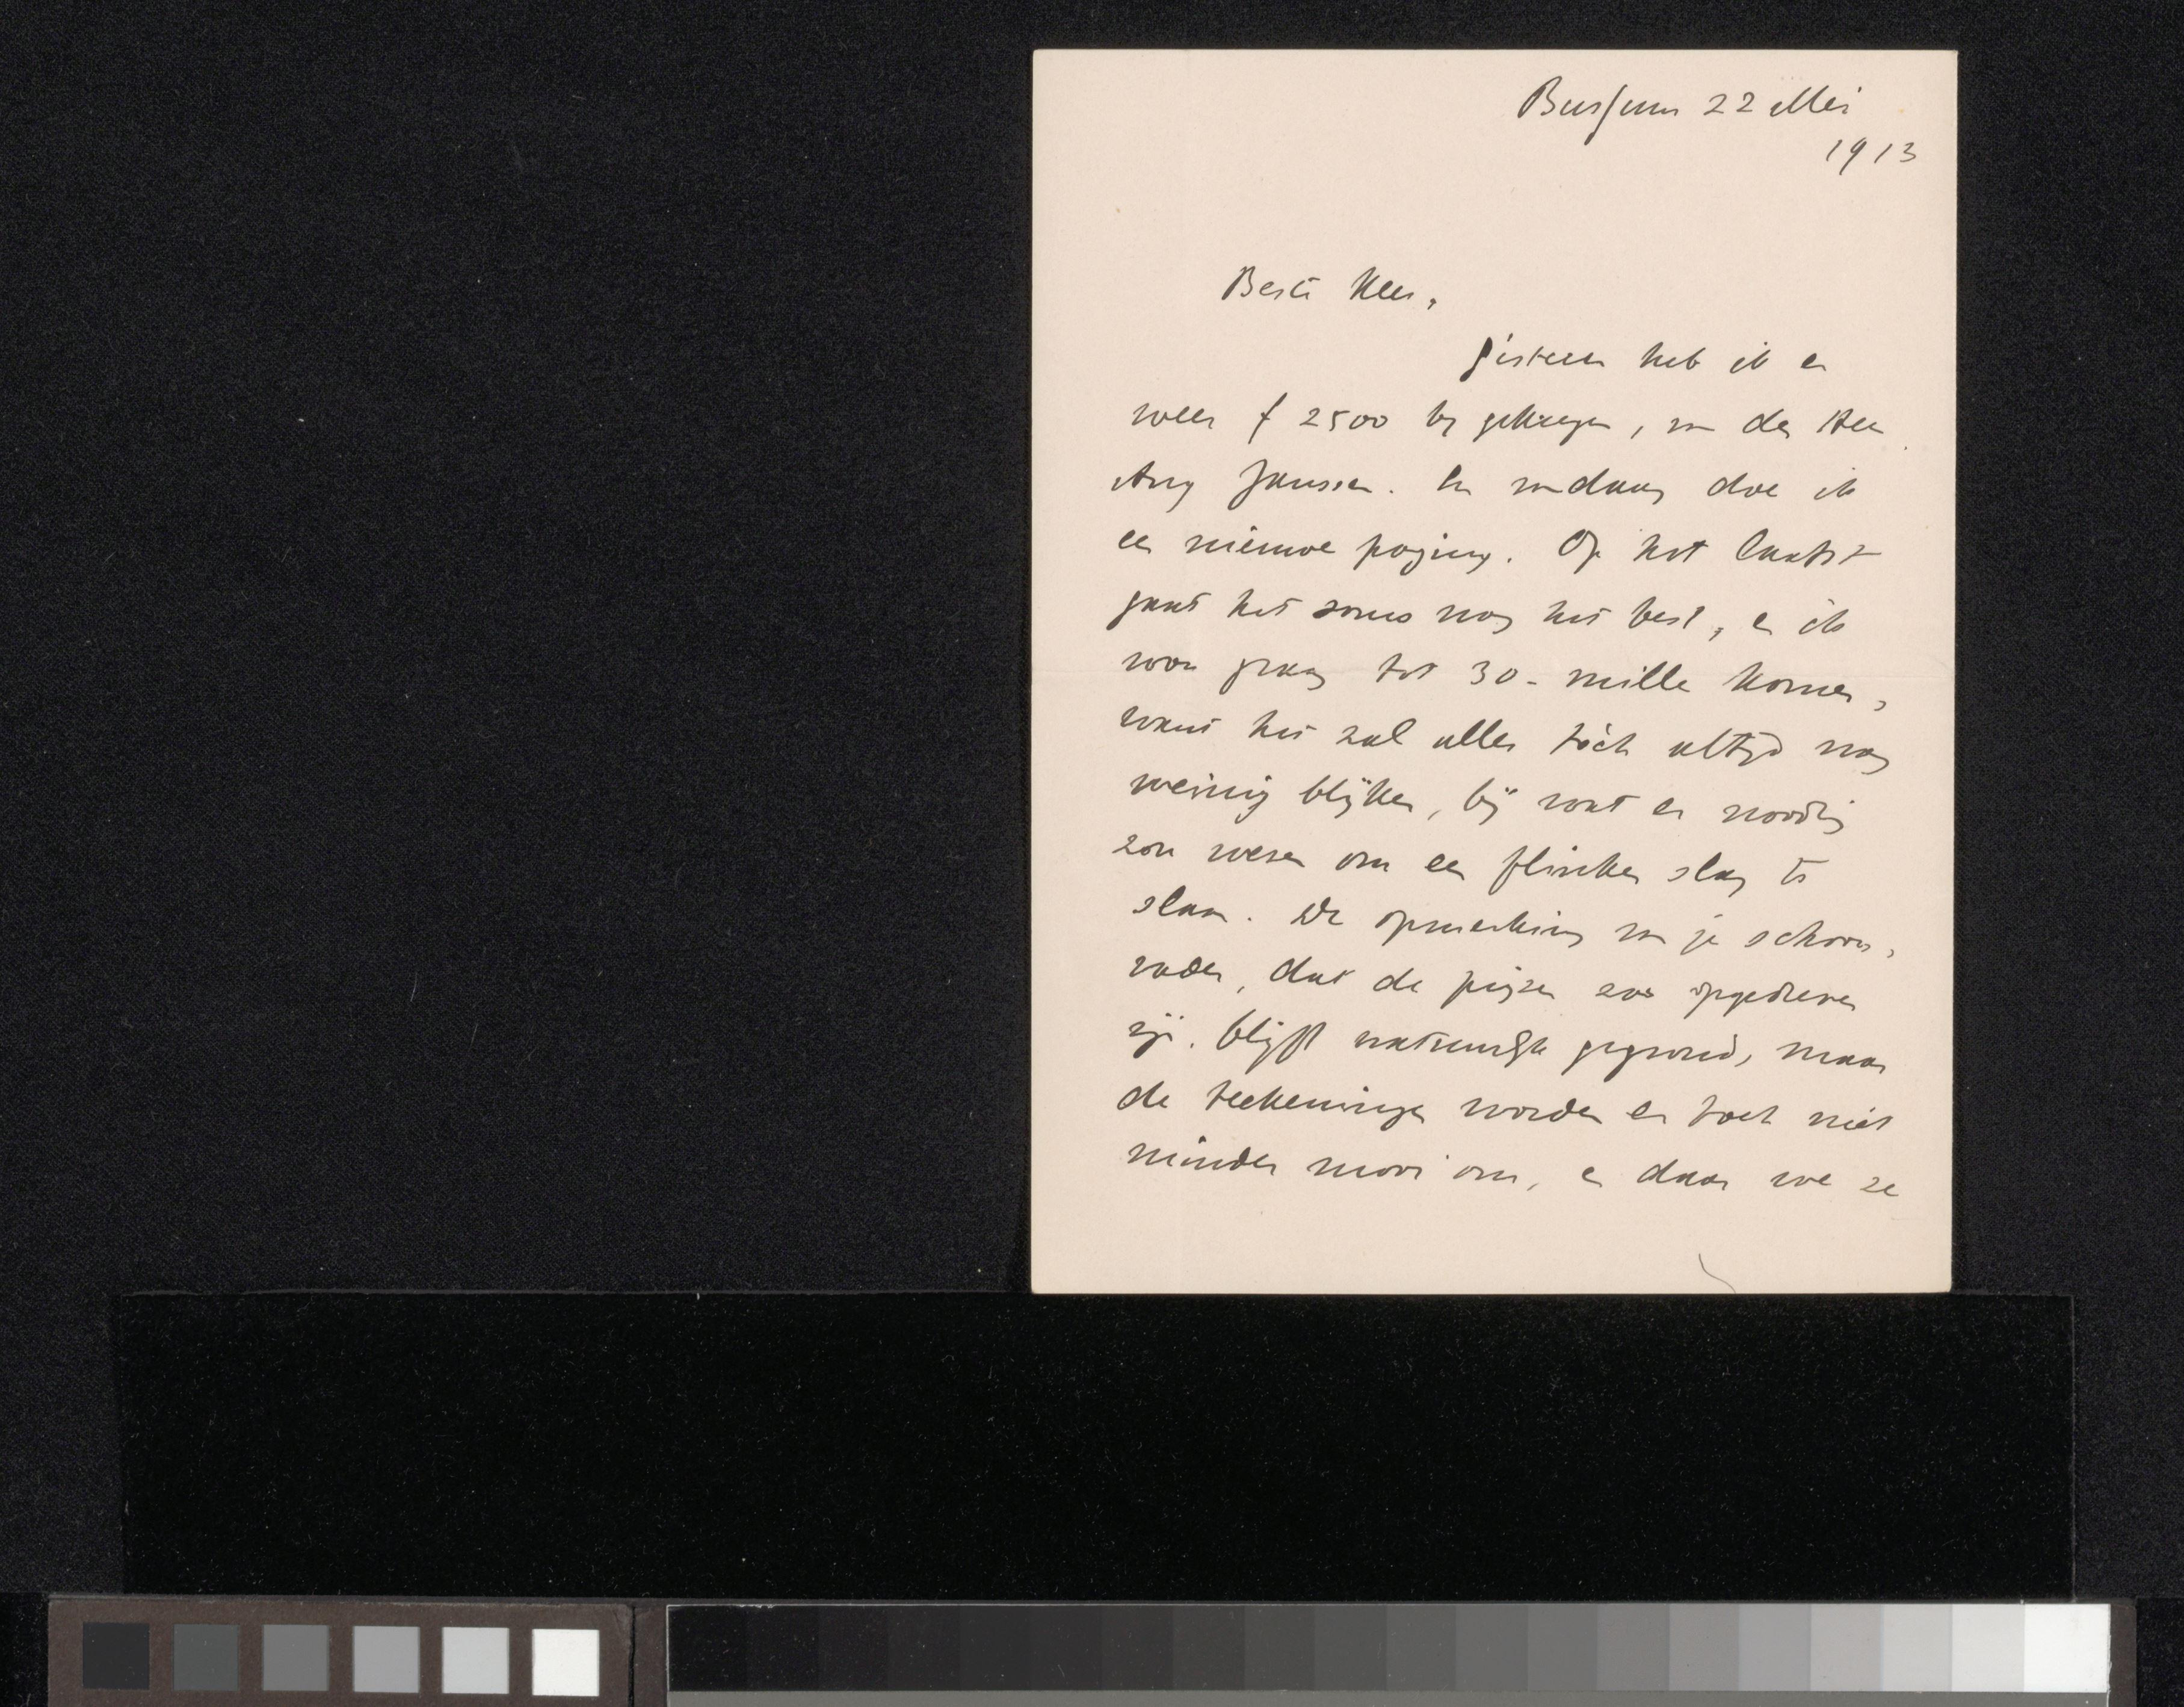 Bussum 22 Mei
1913
Beste Kees,
Gisteren heb ik er
weer f 2500 bij gekregen, van den Heer
Aug Janssen. En vandaag doe ik
een nieuwe poging. Op het laatst
gaat het soms nog het best, en ik
wou graag tot 30 - mille komen,
want het zal alles tòch altijd nog
weinig blijken, bij wat er noodig
zou wezen om een flinken slag te
slaan. De opmerking van je schoon-
vader, dat de prijzen zoo opgedreven
zijn, blijft natuurlijk gegrond, maar
de teekeningen worden er toch niet
minder mooi om, en daar we ze